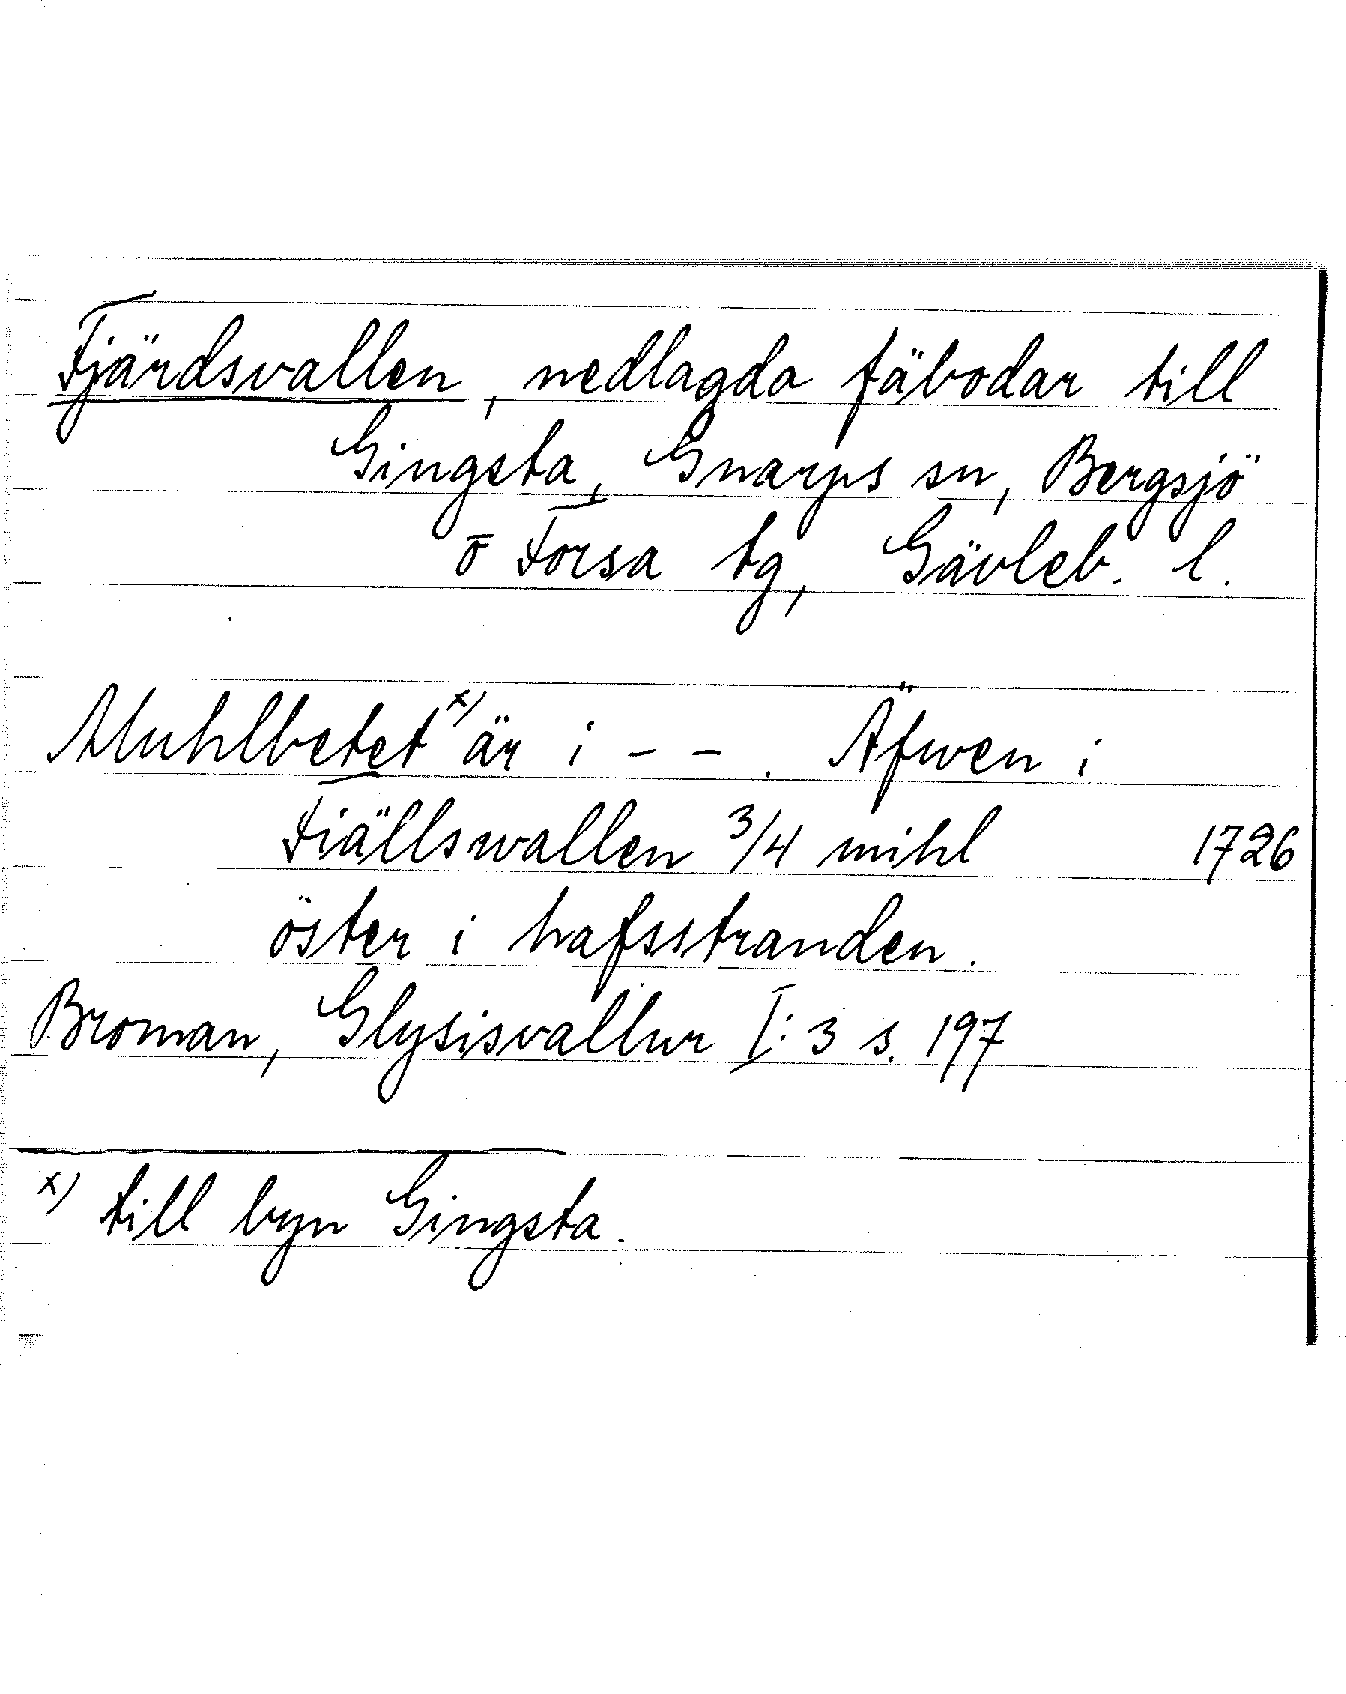 Fjärdsvallen, nedlagda fäbodar till
Gingsta, Gnarps sn, Bergsjö
o Forsa tg, Gävleb. l.
Muhlbetet x) är i - - . Äfwen i
Fiällswallen 3/4 mihl 1726
öster i hafsstranden.
Broman, Glysisvallur I:3 s. 197
x) till byn Gingsta.